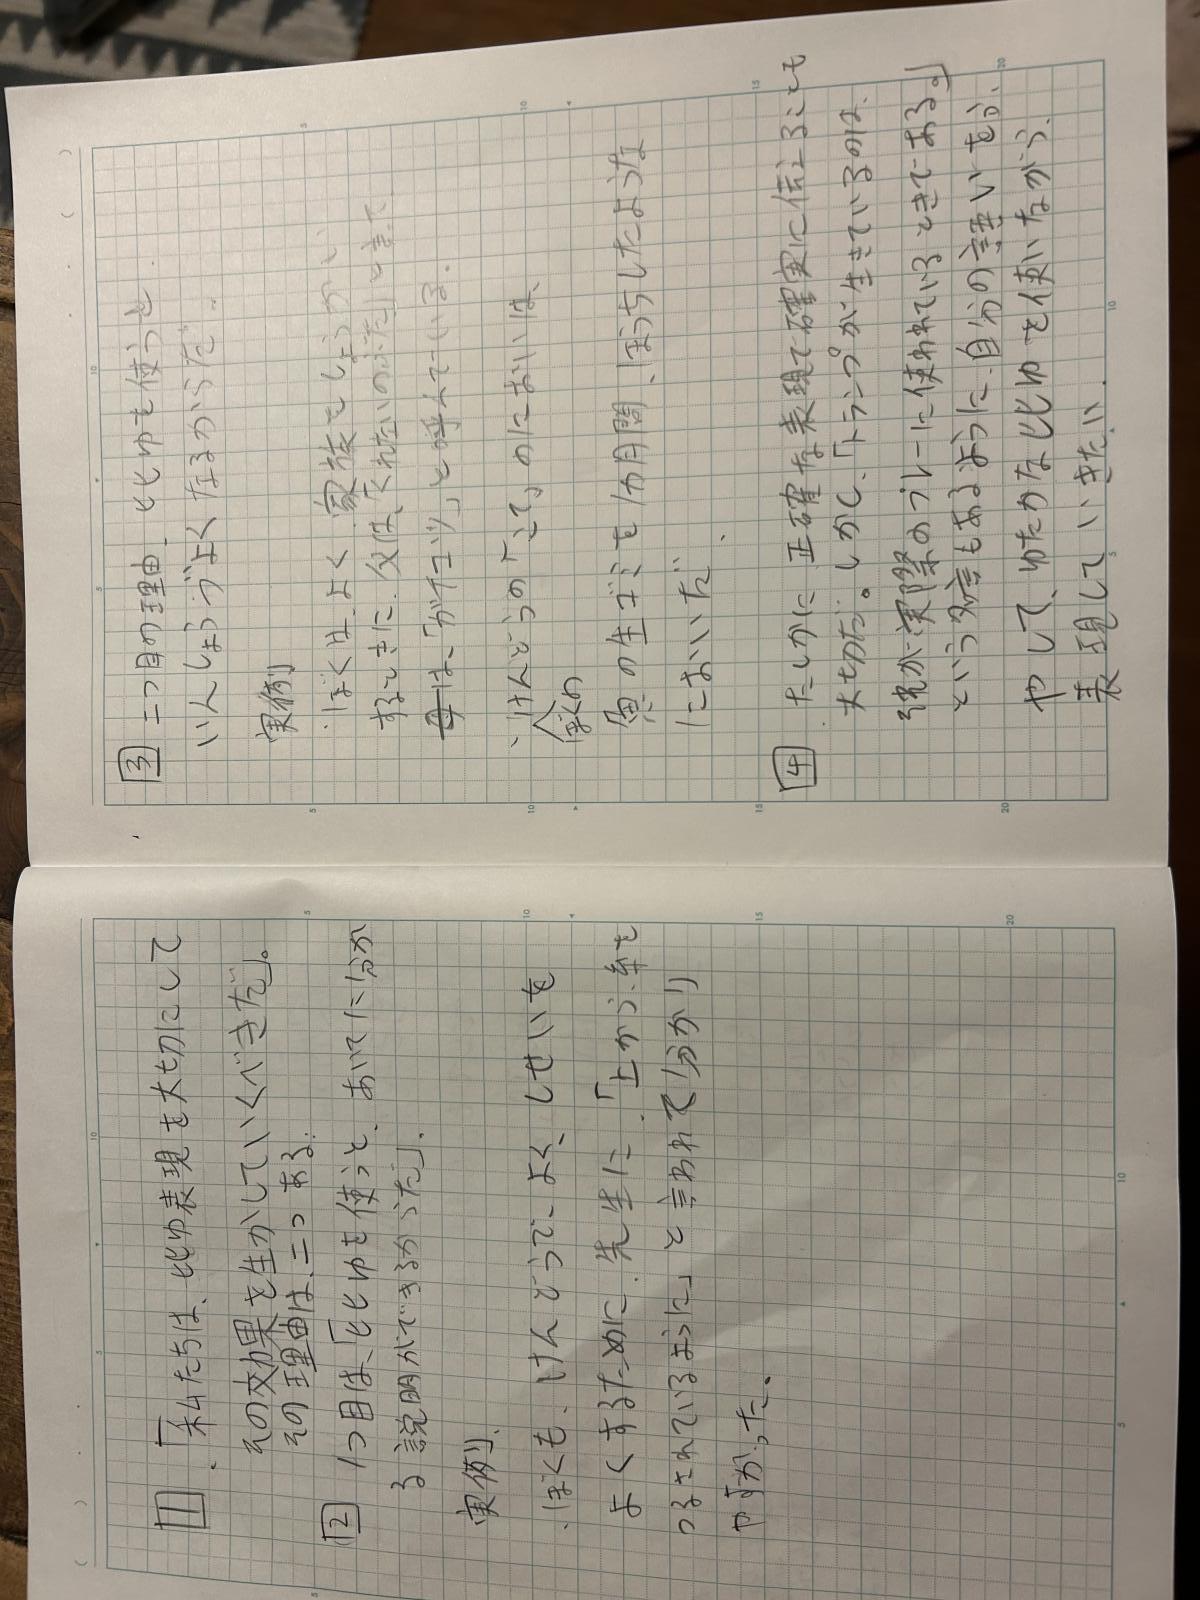 1
・「私たちは、比ゆ表現を大切にして
その効果を生かしていくべきだ」。
その理由は、二つある。
2
1つ目は、「ヒヒゆを使うと、あいてに分か
る説明ができるからだ」。
実例
・ぼくも、けんどうで、よく、しせいを
よくするために、先生に、「上から、糸を
つるされているように」と言われて分かり
やすかった。
3
二つ目の理由、ヒヒゆを使うと
いんしょうづよくなるからだ。
実例
・ぼくは、よく家族でしょうかい
するときに、父は、「くれないのぶた」と
母は、「ガチュリ」と呼んでいる。
・けんどうの「こて」のにおいは、
ぼくの
魚の生ゴミを1か月間、ほうちしたような
においだ
4
・たしかに、正確な表現で確実に伝えることも
大切だ。しかし、「トランプが生きているのは、
それが実際のプレーに使われているときである。」
という名言もあるように、自分の語いをふ
やして、ゆたかな比ゆを使いながら、
表現していきたい、
5
10
15
20